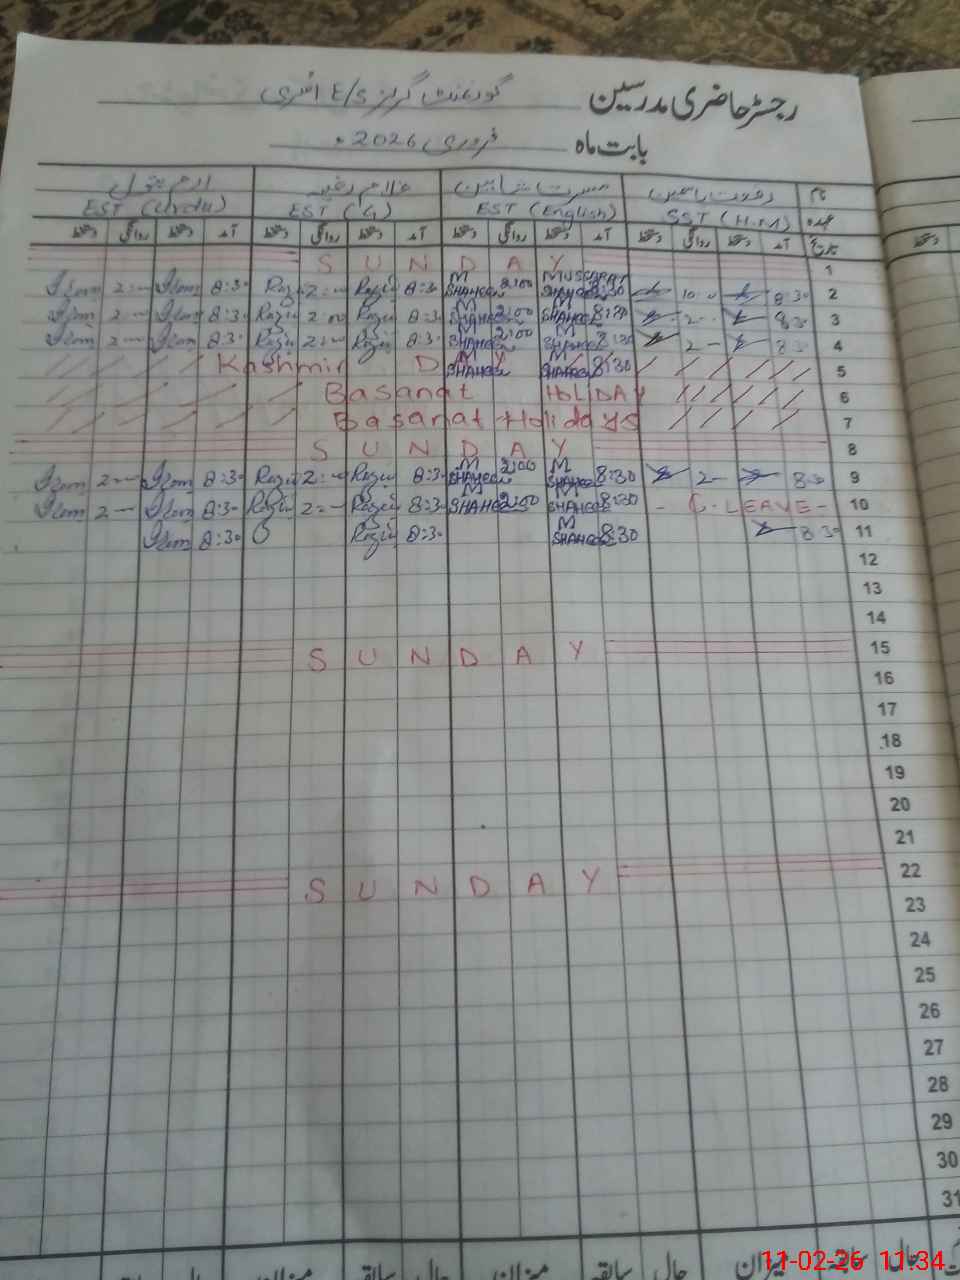 رجسٹر حاضری مدرسین گورنمنٹ گرلز E/S
بابت ماہ فروری 2026ء
نام رفعت یاسمین مسرت شاہین
عہدہ SST (H.M) EST (English) EST (G) EST (Urdu)
تاریخ آمد دستخط روانگی دستخط آمد دستخط روانگی دستخط آمد دستخط روانگی دستخط آمد دستخط روانگی دستخط
1 SUNDAY
2 8:30 10:0 8:30 MUSSARAT SHAHEEN 2:00 M SHAHEEN 8:30 Razia 2:— Razia 8:30 2:—
3 8:30 2— 8:30 M SHAHEEN 2:00 M SHAHEEN 8:30 Razia 2:00 Razia 8:30 2:—
4 8:30 2— 8:30 M SHAHEEN 2:00 M SHAHEEN 8:30 Razia 2:— Razia 8:30 2:—
5 Kashmir DAY 8:30 SHAHEEN SHAHEEN
6 Basanat HOLIDAY
7 Basanat Holidays
8 SUNDAY
9 8:30 2— 8:30 M SHAHEEN 2:00 M SHAHEEN 8:30 Razia 2:— Razia 8:30 2:—
10 - C. LEAVE - 8:30 M SHAHEEN 2:00 M SHAHEEN 8:30 Razia 2:— Razia 8:30 2:—
11 8:30 8:30 M SHAHEEN 8:30 Razia 8:30
12
13
14
15 SUNDAY
16
17
18
19
20
21
22 SUNDAY
23
24
25
26
27
28
29
30
31
میزان سابقہ حال میزان سابقہ حال میزان سابقہ حال
11-02-26 11:34